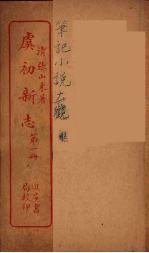 清張山來著
虞初新志
第一冊
進步書局校印
筆記小說大觀